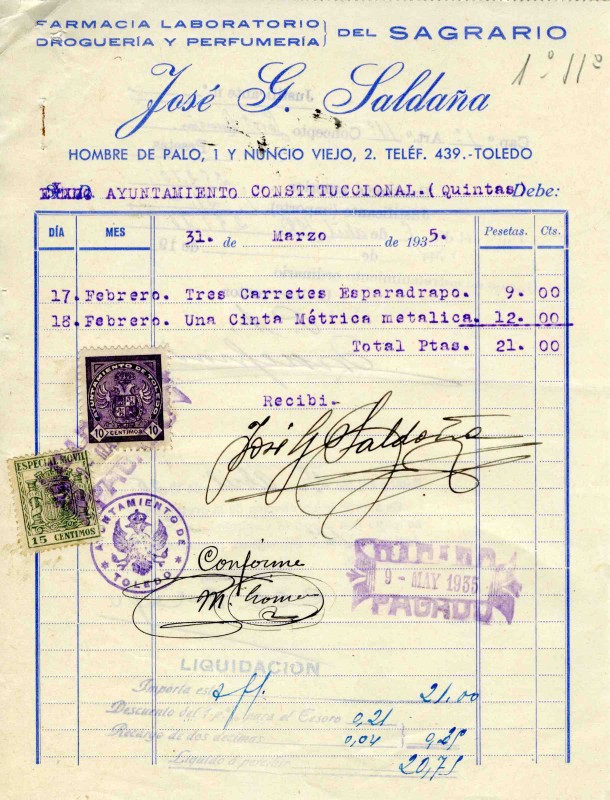 FARMACIA LABORATORIO
DROGUERÍA Y PERFUMERÍA } DEL SAGRARIO
1º 11º
José G. Saldaña
HOMBRE DE PALO, 1 Y NUNCIO VIEJO, 2. TELÉF. 439.-TOLEDO
AYUNTAMIENTO CONSTITUCCIONAL.(Quintas) Debe:
DÍA MES 31. de Marzo de 1935. Pesetas. Cts.
17. Febrero. Tres Carretes Esparadrapo. 9. 00
18. Febrero. Una Cinta Métrica metalica. 12. 00
Total Ptas. 21. 00
AYUNTAMIENTO DE TOLEDO
10 CENTIMOS 10
Recibi.-
José G Saldaña
ESPECIAL MOVIL
15 CENTIMOS
AYUNTAMIENTO DE TOLEDO
Conforme
9 - MAY 1935
PAGADO
LIQUIDACIÓN
Importa est 21.00
Descuento del 1 p% para el Tesoro 0,21
Recargo de dos décimas 0,04 0,25
Líquido a percibir 20,75